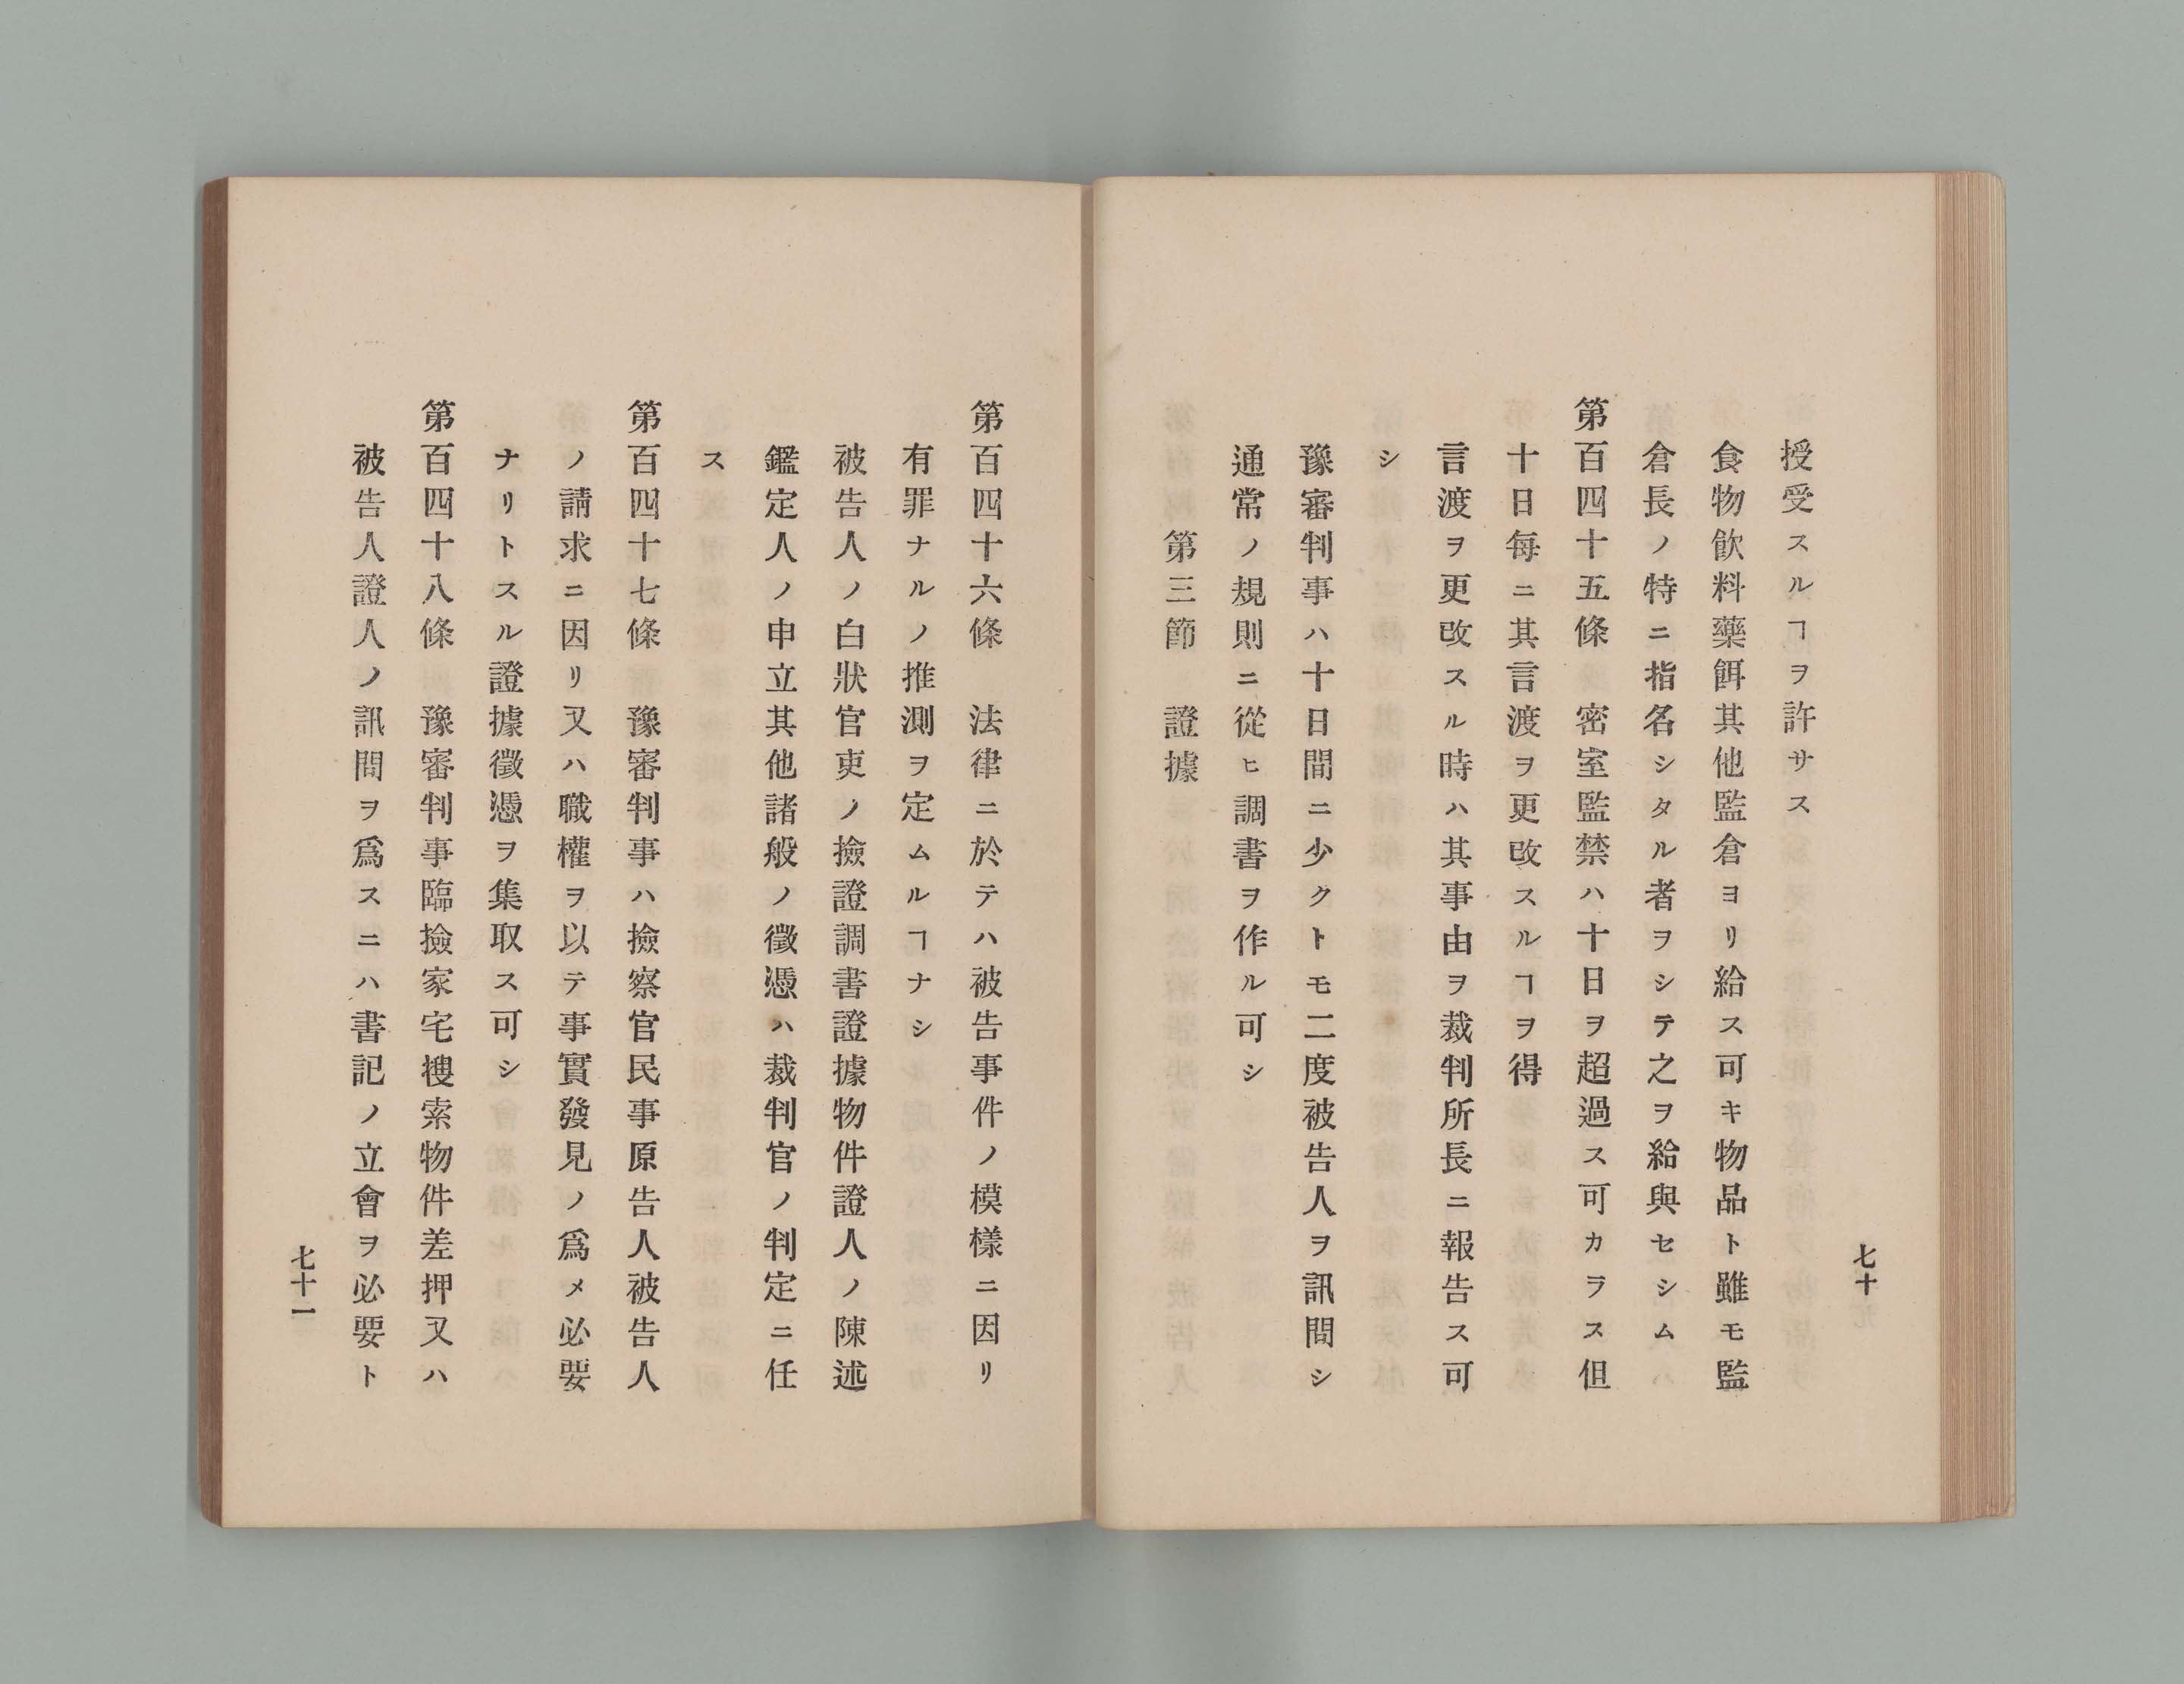 授受スルヿヲ許サス
食物飮料藥餌其他監倉ヨリ給ス可キ物品ト雖モ監
倉長ノ特ニ指名シタル者ヲシテ之ヲ給與セシム
第百四十五條　密室監禁ハ十日ヲ超過ス可カラス但
十日每ニ其言渡ヲ更改スルヿヲ得
言渡ヲ更改スル時ハ其事由ヲ裁判所長ニ報告ス可
シ
豫審判事ハ十日間ニ少クトモ二度被告人ヲ訊問シ
通常ノ規則ニ從ヒ調書ヲ作ル可シ
第三節　證據
七十
第百四十六條　法律ニ於テハ被告事件ノ模樣ニ因リ
有罪ナルノ推測ヲ定ムルヿナシ
被告人ノ白狀官吏ノ撿證調書證據物件證人ノ陳述
鑑定人ノ申立其他諸般ノ徵憑ハ裁判官ノ判定ニ任
ス
第百四十七條　豫審判事ハ撿察官民事原告人被告人
ノ請求ニ因リ又ハ職權ヲ以テ事實發見ノ爲メ必要
ナリトスル證據徵憑ヲ集取ス可シ
第百四十八條　豫審判事臨撿家宅搜索物件差押又ハ
被告人證人ノ訊問ヲ爲スニハ書記ノ立會ヲ必要ト
七十一